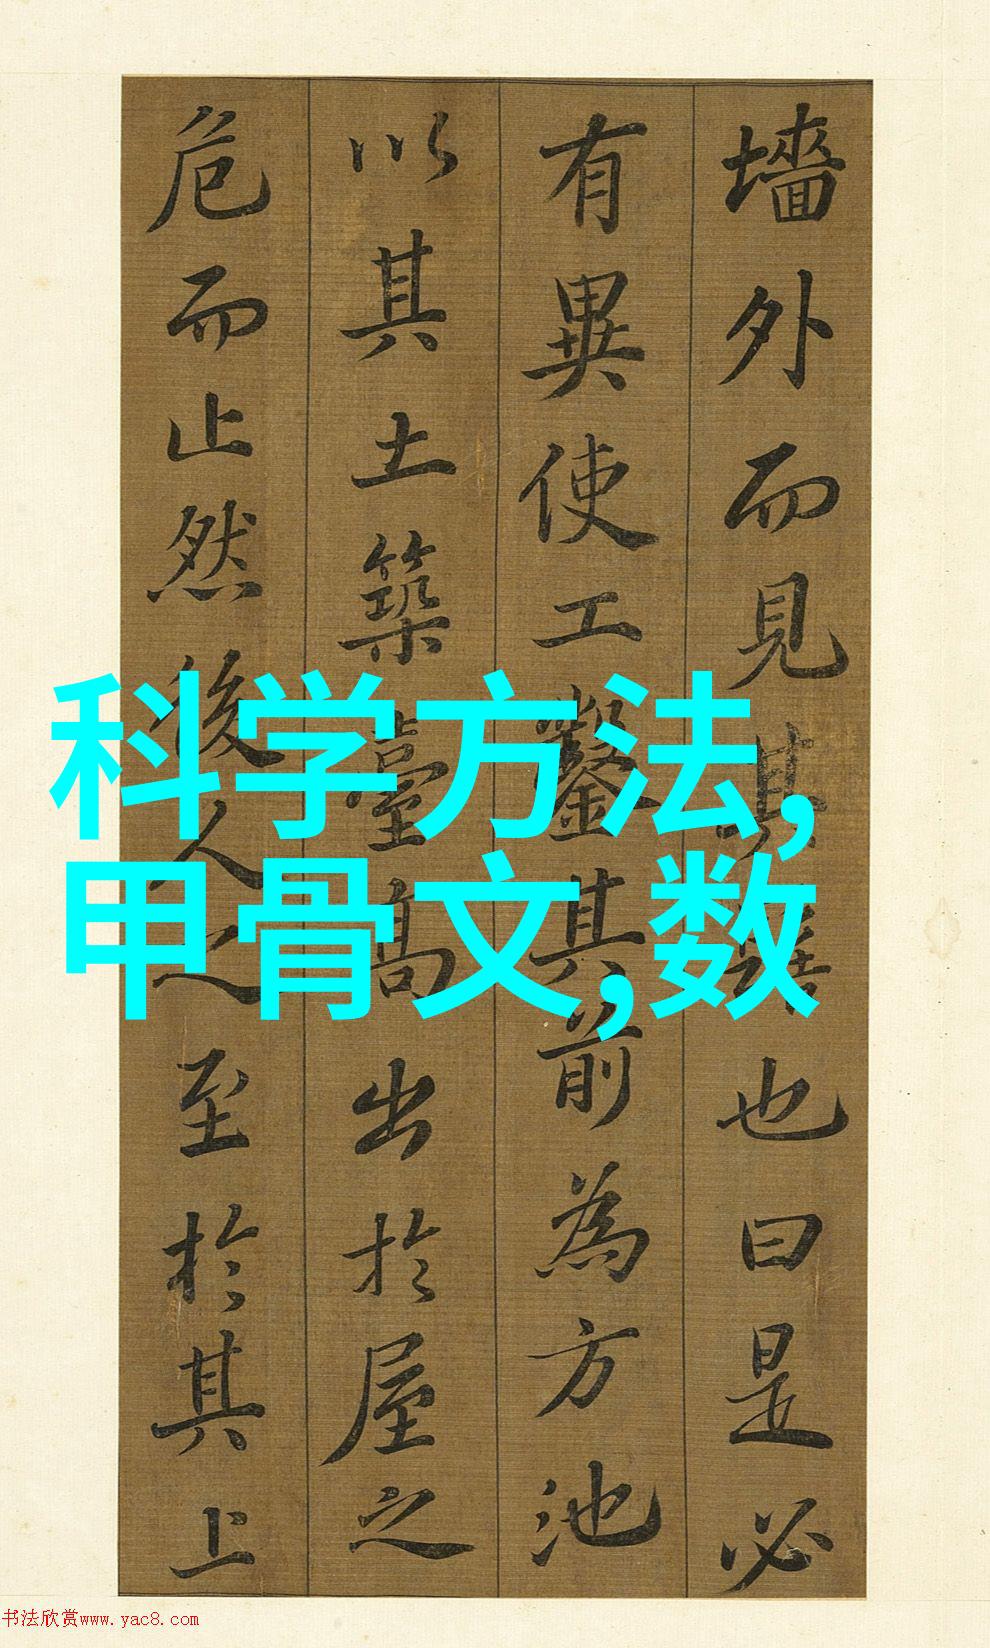 墻外而見其髻也曰是必
有異使工鑿其前為方池
以其土築臺高出於屋之
危而止然後人之至於其上
科学方法,
甲骨文,数
书法欣赏www.yac8.com